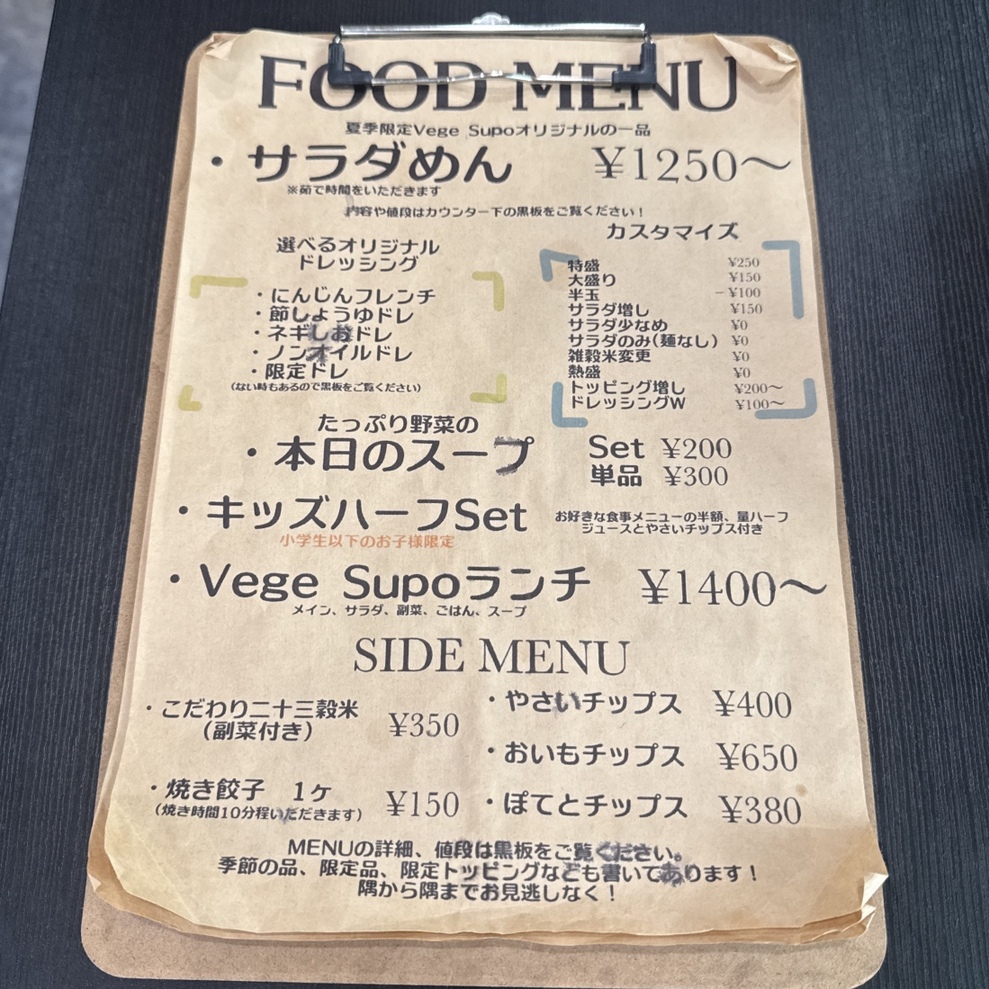 FOOD MENU
夏季限定Vege Supoオリジナルの一品
・サラダめん ¥1250〜
※茹で時間をいただきます
内容や値段はカウンター下の黒板をご覧ください！
カスタマイズ
選べるオリジナル
ドレッシング
・にんじんフレンチ
・節しょうゆドレ
・ネギしおドレ
・ノンオイルドレ
・限定ドレ
（ない時もあるので黒板をご覧ください）
特盛 ¥250
大盛り ¥150
半玉 −¥100
サラダ増し ¥150
サラダ少なめ ¥0
サラダのみ（麺なし） ¥0
雑穀米変更 ¥0
熱盛 ¥0
トッピング増し ¥200〜
ドレッシングW ¥100〜
たっぷり野菜の
・本日のスープ
Set ¥200
単品 ¥300
・キッズハーフSet
小学生以下のお子様限定
お好きな食事メニューの半額、量ハーフ
ジュースとやさいチップス付き
・Vege Supoランチ ¥1400〜
メイン、サラダ、副菜、ごはん、スープ
SIDE MENU
・こだわり二十三穀米
（副菜付き） ¥350
・焼き餃子 1ケ ¥150
（焼き時間10分程いただきます）
・やさいチップス ¥400
・おいもチップス ¥650
・ぽてとチップス ¥380
MENUの詳細、値段は黒板をご覧ください。
季節の品、限定品、限定トッピングなども書いてあります！
隅から隅までお見逃しなく！